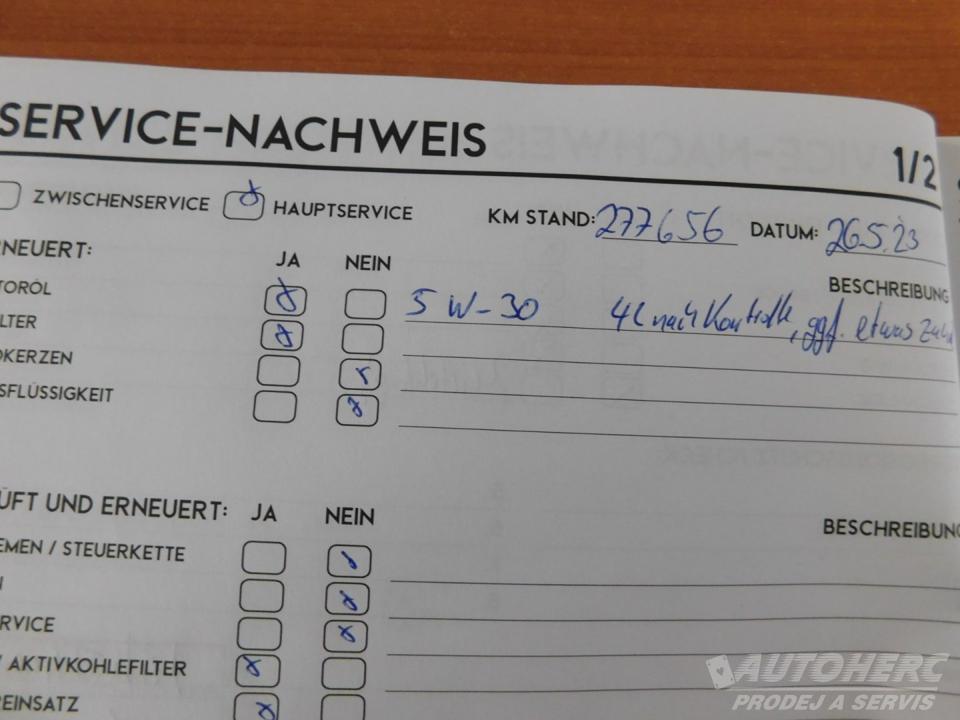 SERVICE-NACHWEIS
1/2
ZWISCHENSERVICE HAUPTSERVICE KM STAND: 277656 DATUM: 26.5.23
RNEUERT: JA NEIN BESCHREIBUNG
TORÖL 5 W-30 4L nach Kontrolle, ggf. etwas
LTER
DKERZEN
SFLÜSSIGKEIT
ÜFT UND ERNEUERT: JA NEIN BESCHREIBUNG
EMEN / STEUERKETTE
RVICE
/ AKTIVKOHLEFILTER
REINSATZ
AUTOHERC
PRODEJ A SERVIS